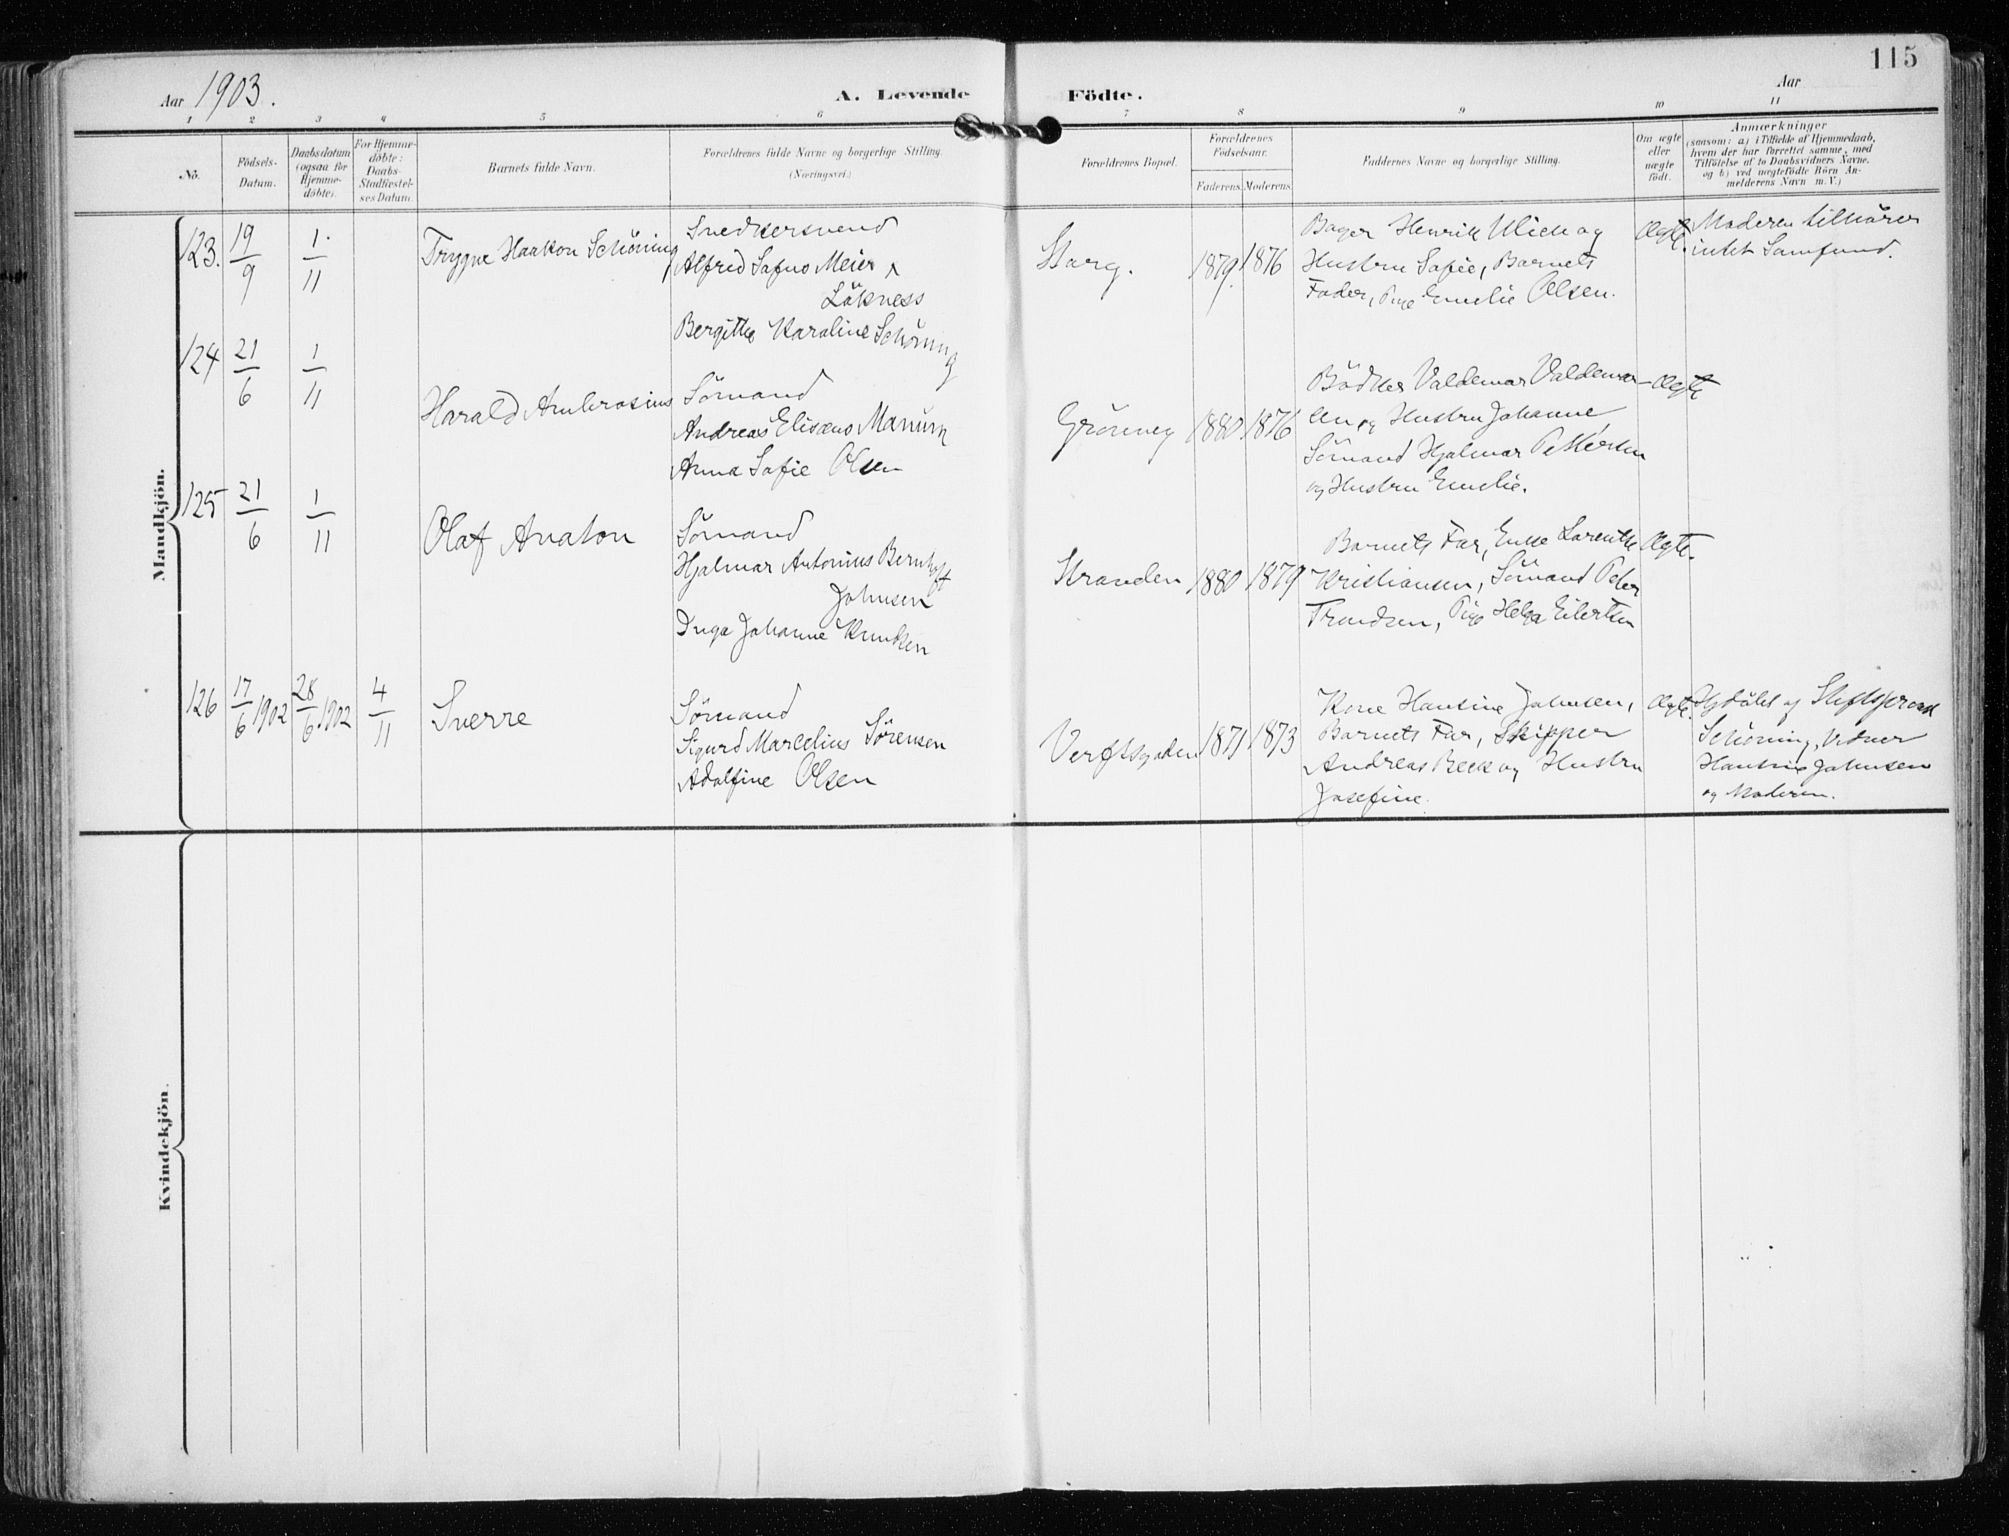 115
Aar 1903.
A. Levende Födte.
Aar
1 2 3 4 5 6 7 8 9 10 11
No.
Födsels-
Datum.
Daabsdatum
(ogsaa for
Hjemme-
döbte).
For Hjemme-
döbte:
Daabs-
Stadfæstel-
ses Datum.
Barnets fulde Navn.
Forældrenes fulde Navne og borgerlige Stilling.
(Næringsvei.)
Forældrenes Bopæl.
Forældrenes
Födselsaar.
Faderens. Moderens.
Faddernes Navne og borgerlige Stilling.
Om ægte
eller
uægte
födt.
Anmærkninger
(saasom: a) i Tilfælde af Hjemmedaab,
hvem der har forrettet samme, med
Tilföielse af to Daabsvidners Navne.
og b) ved uægtefödte Börn An-
melderens Navn m. V.)
Mandkjön.
123. 19/9 1/11
Trygve Haakon Schöning
Snedkersvend
Alfred Sofus Meier
Lökness
Bergitte Karoline Schöning
Storg.
1879. 1876
Bager Henrik Ulich og
Hustru Sofie, Barnets
Fader, Pige Emelie Olsen.
Ægte.
Moderen tilhörer
intet Samfund.
124 21/6 1/11
Harald Ambrosius
Sömand
Andreas Elisæus Manum
Anna Sofie Olsen
Grönneg
1880 1876
Bödker Valdemar Valdemar-
og Hustru Johanne
Sömand Hjalmar Pettersen
og Hustru Emelie.
Ægte
125 21/6 1/11
Olaf Anaton
Sömand
Hjalmar Antonius Bernhoft
Johnsen
Inga Johanne Knudsen
Stranden
1880 1879
Barnets Far, Enke
Kristiansen, Sömand Peter
Trondsen, Pige Helga Eilertsen
Ægte.
126 17/6 1902 28/6 1902 4/11
Sverre
Sömand
Sigurd Marcelius Sörensen
Adolfine Olsen
Verftsgaden
1871 1873
Kone Hansine Johnsen,
Barnets Far, Skipper
Andreas Beck og Hustru
Josefine.
Ægte.
Hjdöbt af Stiftsprovst
Schöning, Vidner
Hansine Johnsen
og Moderen.
Kvindekjön.